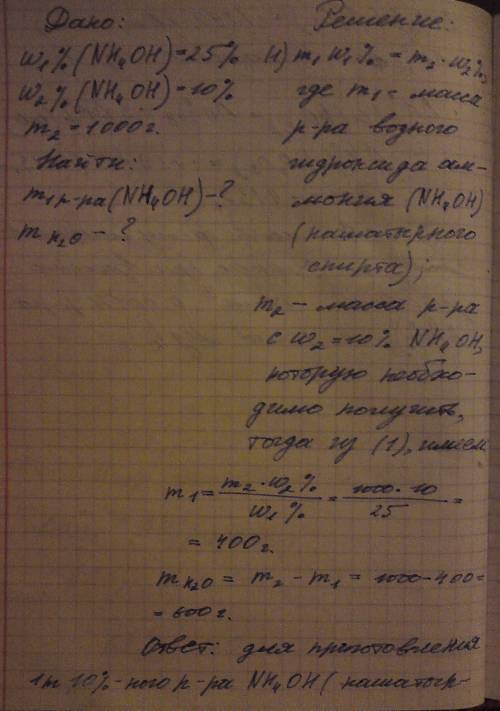 Дано:
Решение:
w₁%(NH₄OH)=25%
w₂%(NH₄OH)=10%
m₂=1000г.
Найти:
m₁ р-ра(NH₄OH)-?
m H₂O - ?
1) m₁·w₁% = m₂·w₂%,
где m₁ = масса
р-ра водного
гидроксида ам-
мония (NH₄OH)
(нашатырного
спирта);
m₂ – масса р-ра
с w₂=10% NH₄OH,
которую необхо-
димо получить,
тогда из (1), имеем
m₁ = m₂·w₂% / w₁% = 1000·10 / 25 =
= 400г.
m H₂O = m₂ - m₁ = 1000-400=
= 600г.
Ответ: для приготовления
1т 10%-ного р-ра NH₄OH (нашатыр-